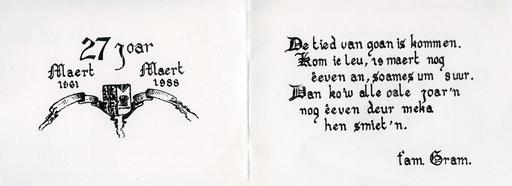 27 joar
Maert Maert
1961 1988
De tied van goan is kommen.
Kom ie leu, is maert nog
eeven an, soames um 8 uur.
Dan ko'w alle oale joar'n
nog eeven deur meka
hen smiet'n.
fam. Gram.